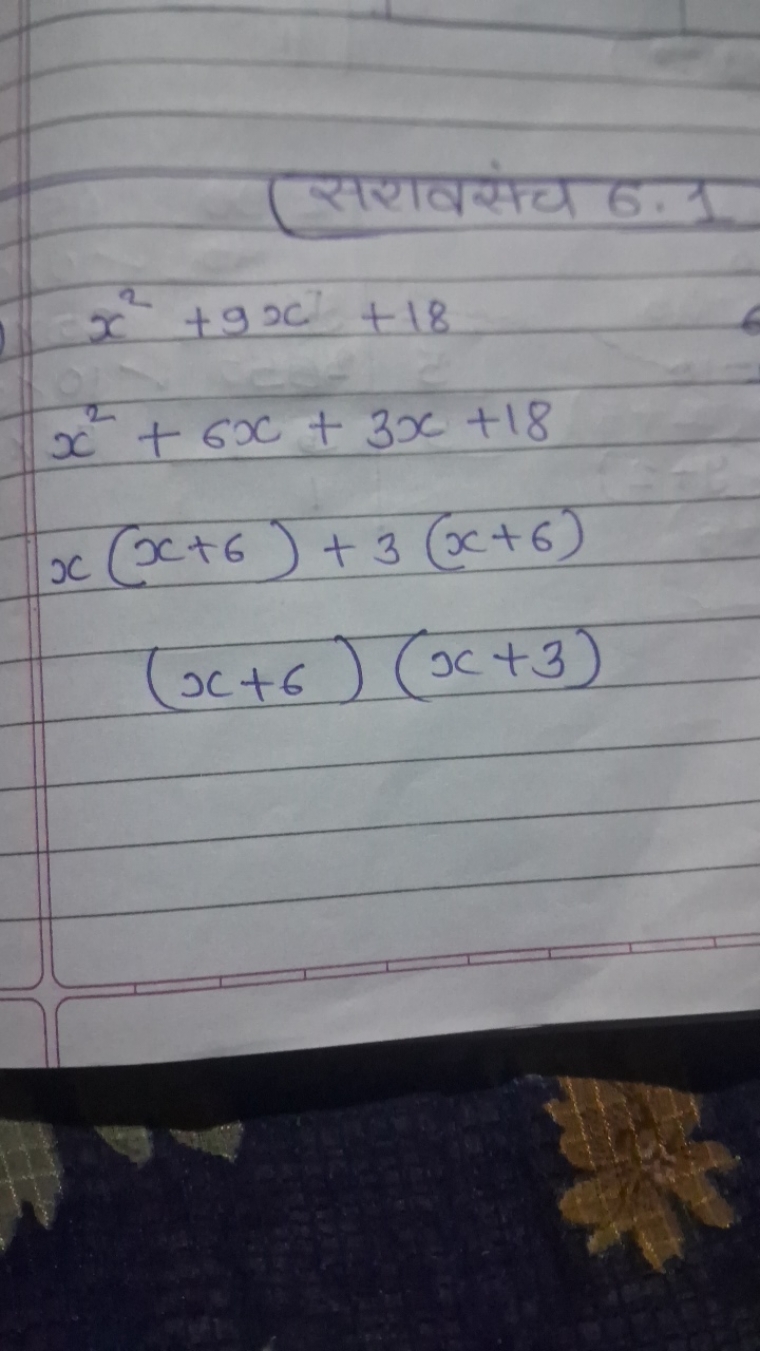 सरावसंच 6.1
x² + 9x + 18
x² + 6x + 3x + 18
x (x+6) + 3 (x+6)
(x+6) (x+3)